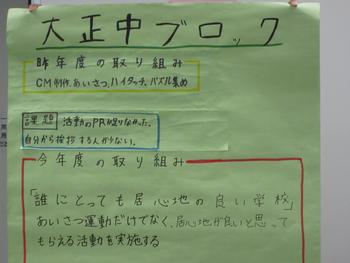 大正中ブロック
昨年度の取り組み
CM制作、あいさつ、ハイタッチ、パズル集め
課題 活動のPRが足りなかった。
自分から挨拶する人が少ない。
今年度の取り組み
「誰にとっても居心地の良い学校」
あいさつ運動だけでなく、居心地が良いと思って
もらえる活動を実施する